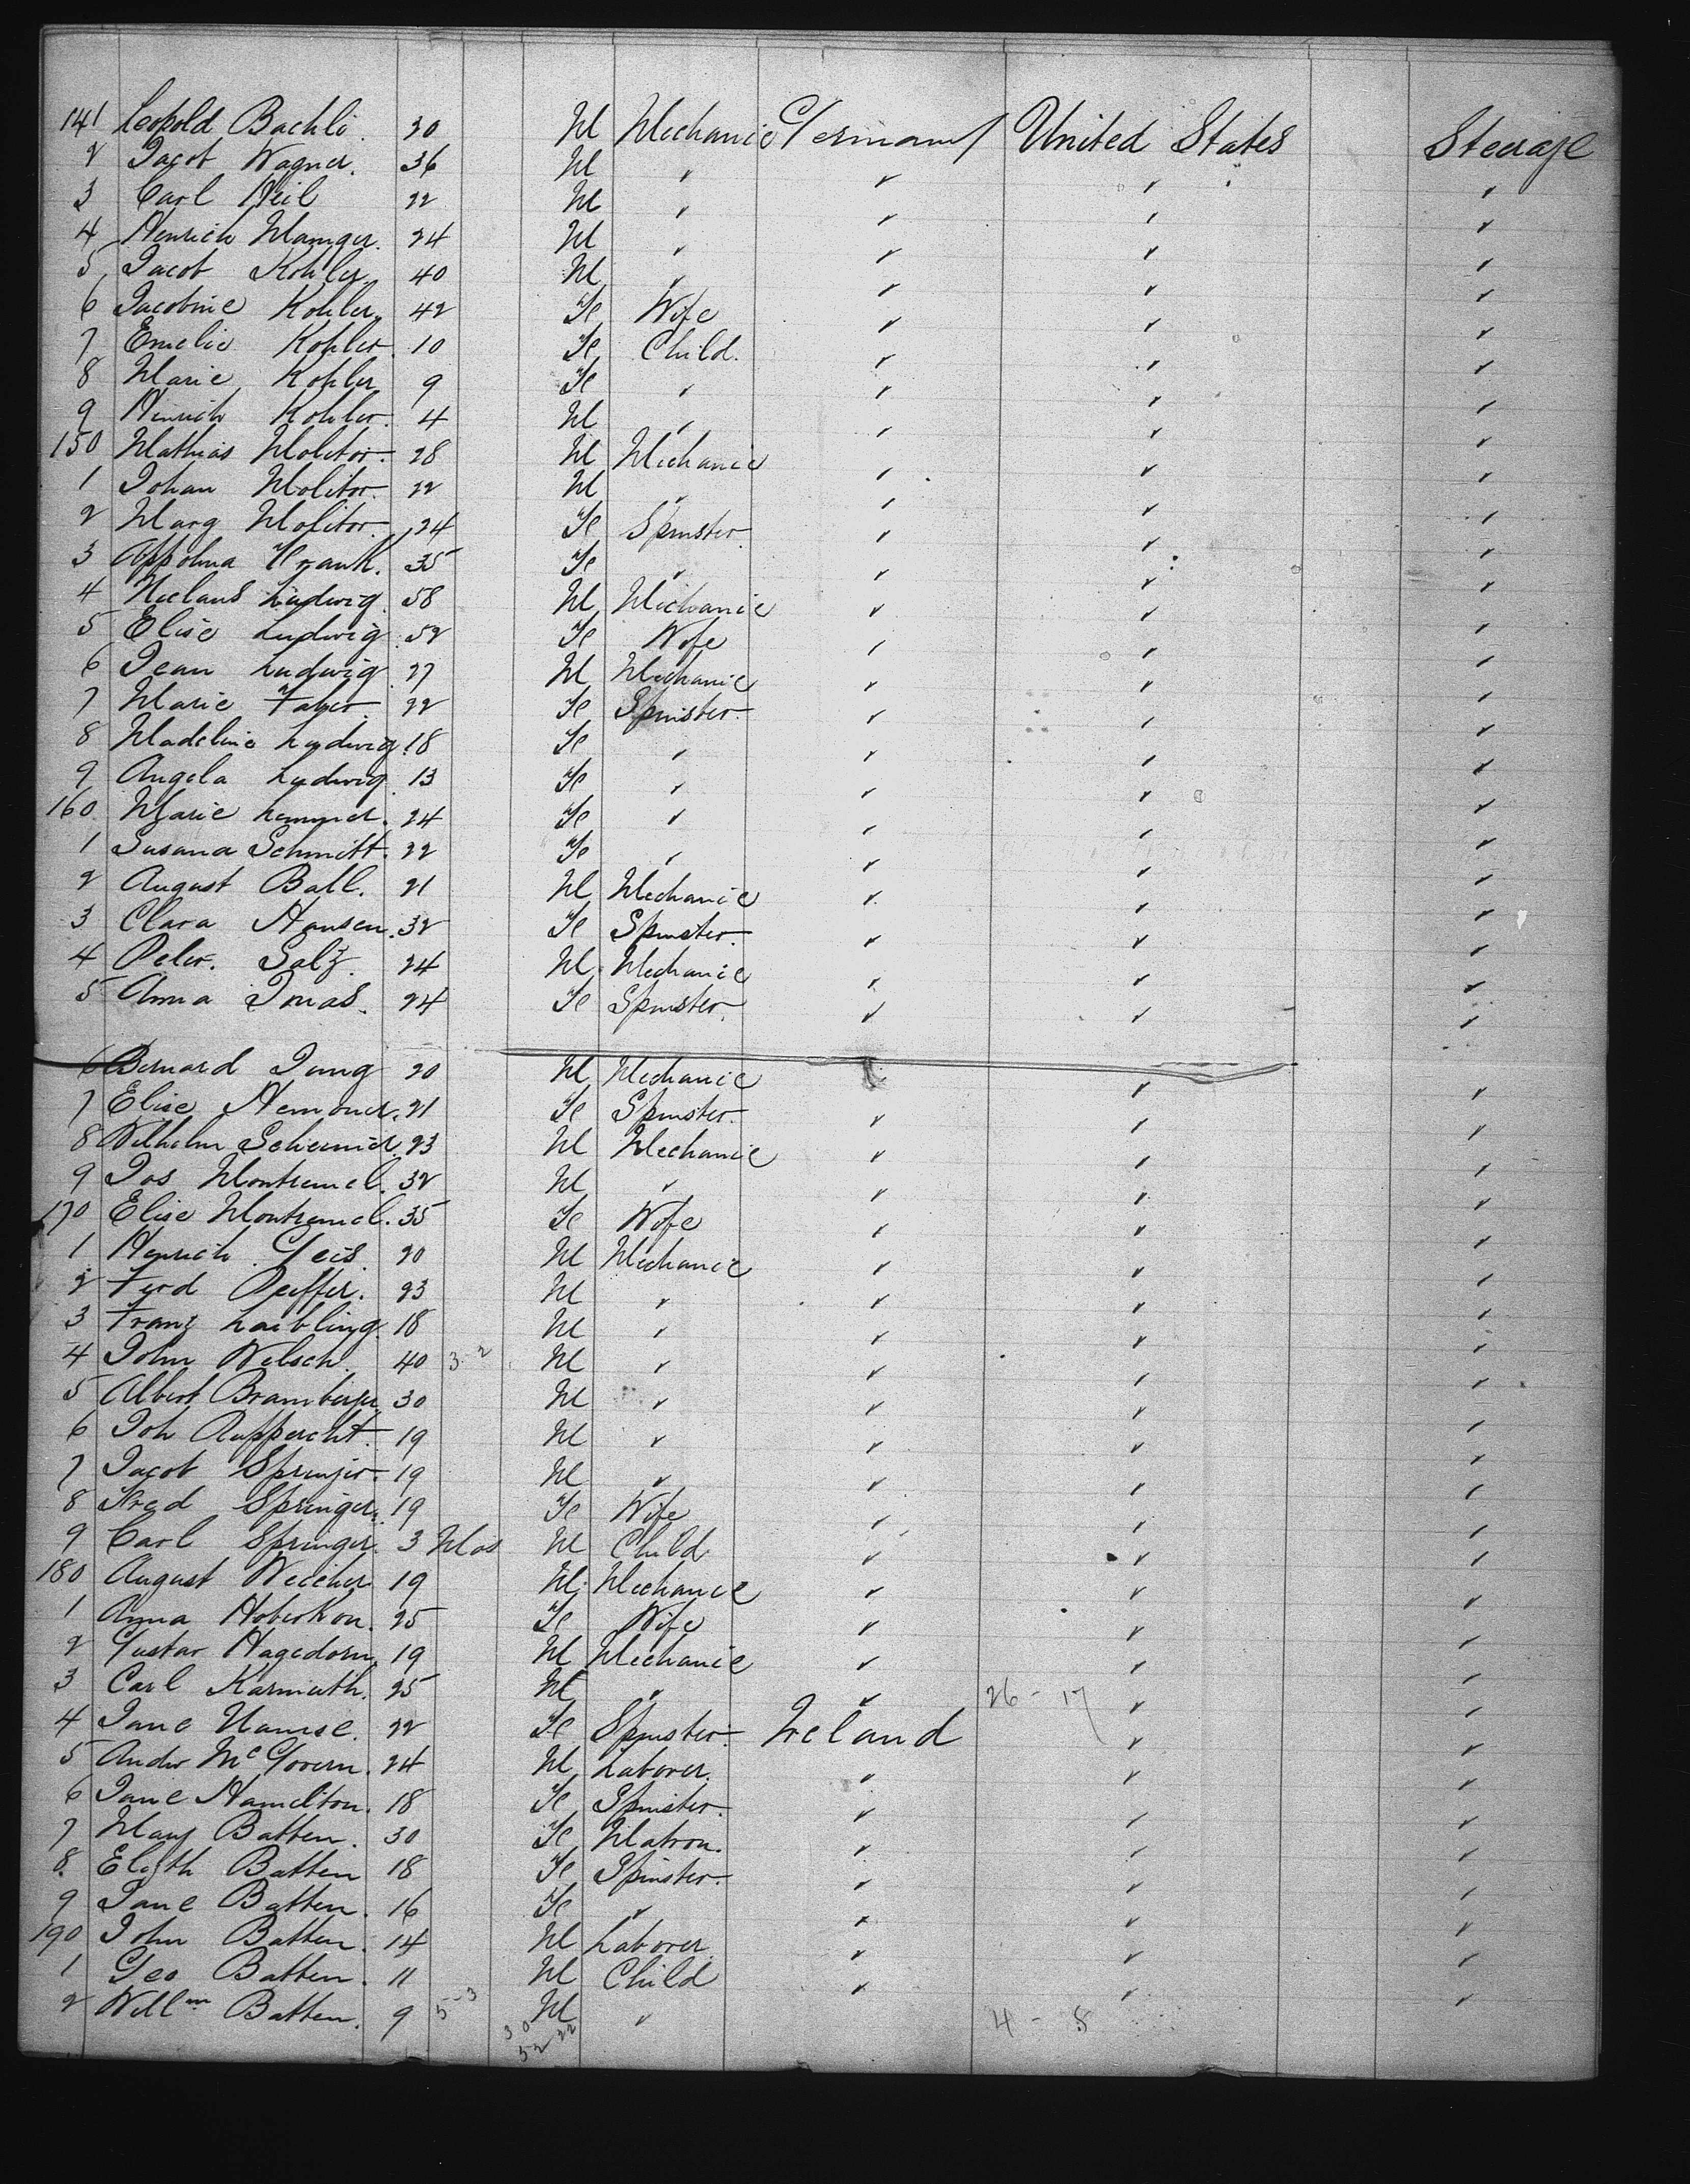 141 Leopold Bachli. 30 M Mechanic Germany United States Steerage
2 Jacob Wagner. 36 M ✓ ✓ ✓ ✓
3 Carl Weil 22 M ✓ ✓ ✓ ✓
4 Henrich 24 M ✓ ✓ ✓ ✓
5 Jacob Kohler. 40 M ✓ ✓ ✓ ✓
6 Jacobine Kohler. 42 Fe Wife ✓ ✓ ✓
7 Emelie Kohler. 10 Fe Child. ✓ ✓ ✓
8 Marie Kohler 9 Fe ✓ ✓ ✓ ✓
9 Henrich Kohler. 4 M ✓ ✓ ✓ ✓
150 Mathias Molitor. 28 M Mechanic ✓ ✓ ✓
1 Johan Molitor. 22 M ✓ ✓ ✓ ✓
2 Marg Molitor. 24 Fe Spinster. ✓ ✓ ✓
3 Appolina Frank. 35 Fe ✓ ✓ ✓ ✓
4 Niclaus Ludwig. 58 M Mechanic ✓ ✓ ✓
5 Elise Ludwig. 52 Fe Wife ✓ ✓ ✓
6 Jean Ludwig. 27 M Mechanic ✓ ✓ ✓
7 Marie Faber. 22 Fe Spinster. ✓ ✓ ✓
8 Madeline Ludwig. 18 Fe ✓ ✓ ✓ ✓
9 Angela Ludwig. 13 Fe ✓ ✓ ✓ ✓
160 Marie 24 Fe ✓ ✓ ✓ ✓
1 Susana Schmitt. 22 Fe ✓ ✓ ✓ ✓
2 August Ball. 21 M Mechanic ✓ ✓ ✓
3 Clara Hansen. 32 Fe Spinster. ✓ ✓ ✓
4 Peter. Salz. 24 M Mechanic ✓ ✓ ✓
5 Anna Jonas. 24 Fe Spinster. ✓ ✓ ✓
6 Bernard Jung 20 M Mechanic ✓ ✓ ✓
7 Elise 21 Fe Spinster. ✓ ✓ ✓
8 Wilhelm 23 M Mechanic ✓ ✓ ✓
9 Jos 32 M ✓ ✓ ✓ ✓
170 Elise 35 Fe Wife ✓ ✓ ✓
1 Henrich Geis. 20 M Mechanic ✓ ✓ ✓
2 Ferd Peiffer. 23 M ✓ ✓ ✓ ✓
3 Franz Laibling. 18 M ✓ ✓ ✓ ✓
4 John Welsch. 40 3-2 M ✓ ✓ ✓ ✓
5 Albert 30 M ✓ ✓ ✓ ✓
6 Joh Ruppercht. 19 M ✓ ✓ ✓ ✓
7 Jacob Springer. 19 M ✓ ✓ ✓ ✓
8 Fred Springer. 19 Fe Wife ✓ ✓ ✓
9 Carl Springer. 3 Mos M Child ✓ ✓ ✓
180 August 19 M Mechanic ✓ ✓ ✓
1 Anna 25 Fe Wife ✓ ✓ ✓
2 Gustav Hagedorn. 19 M Mechanic ✓ ✓ ✓
3 Carl Karmuth. 25 M ✓ ✓ 26 - 17 ✓ ✓
4 Jane 22 Fe Spinster. Ireland ✓ ✓
5 Andw McGovern. 24 M Laborer. ✓ ✓ ✓
6 Jane Hamilton. 18 Fe Spinster. ✓ ✓ ✓
7 Mary Batten. 30 Fe Matron. ✓ ✓ ✓
8. Elisth Batten 18 Fe Spinster. ✓ ✓ ✓
9 Jane Batten. 16 Fe ✓ ✓ ✓ ✓
190 John Batten. 14 M Laborer. ✓ ✓ ✓
1 Geo Batten. 11 M Child ✓ ✓ ✓
2 Willm Batten. 9 5-3 M ✓ 4 - 8
30 22
52